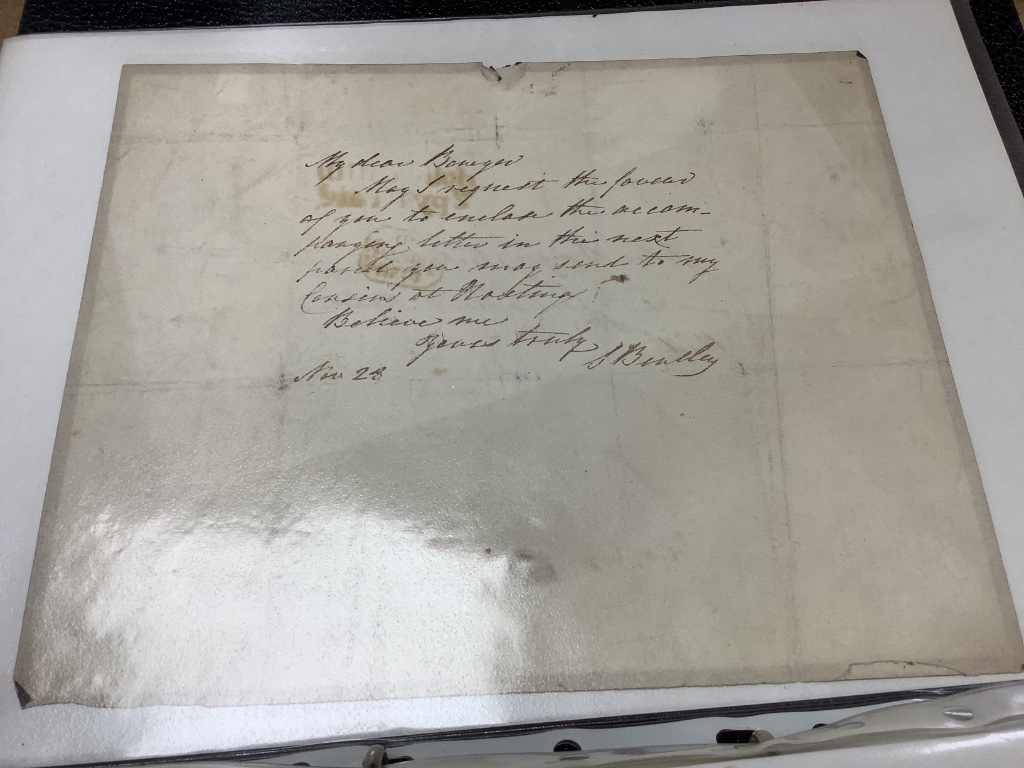 My dear Bowyer
May I request the favour
of you to enclose the accom-
panying letter in the next
parcel you may send to my
Cousins at Hastings
Believe me
Yours truly
S Bentley
Nov 28